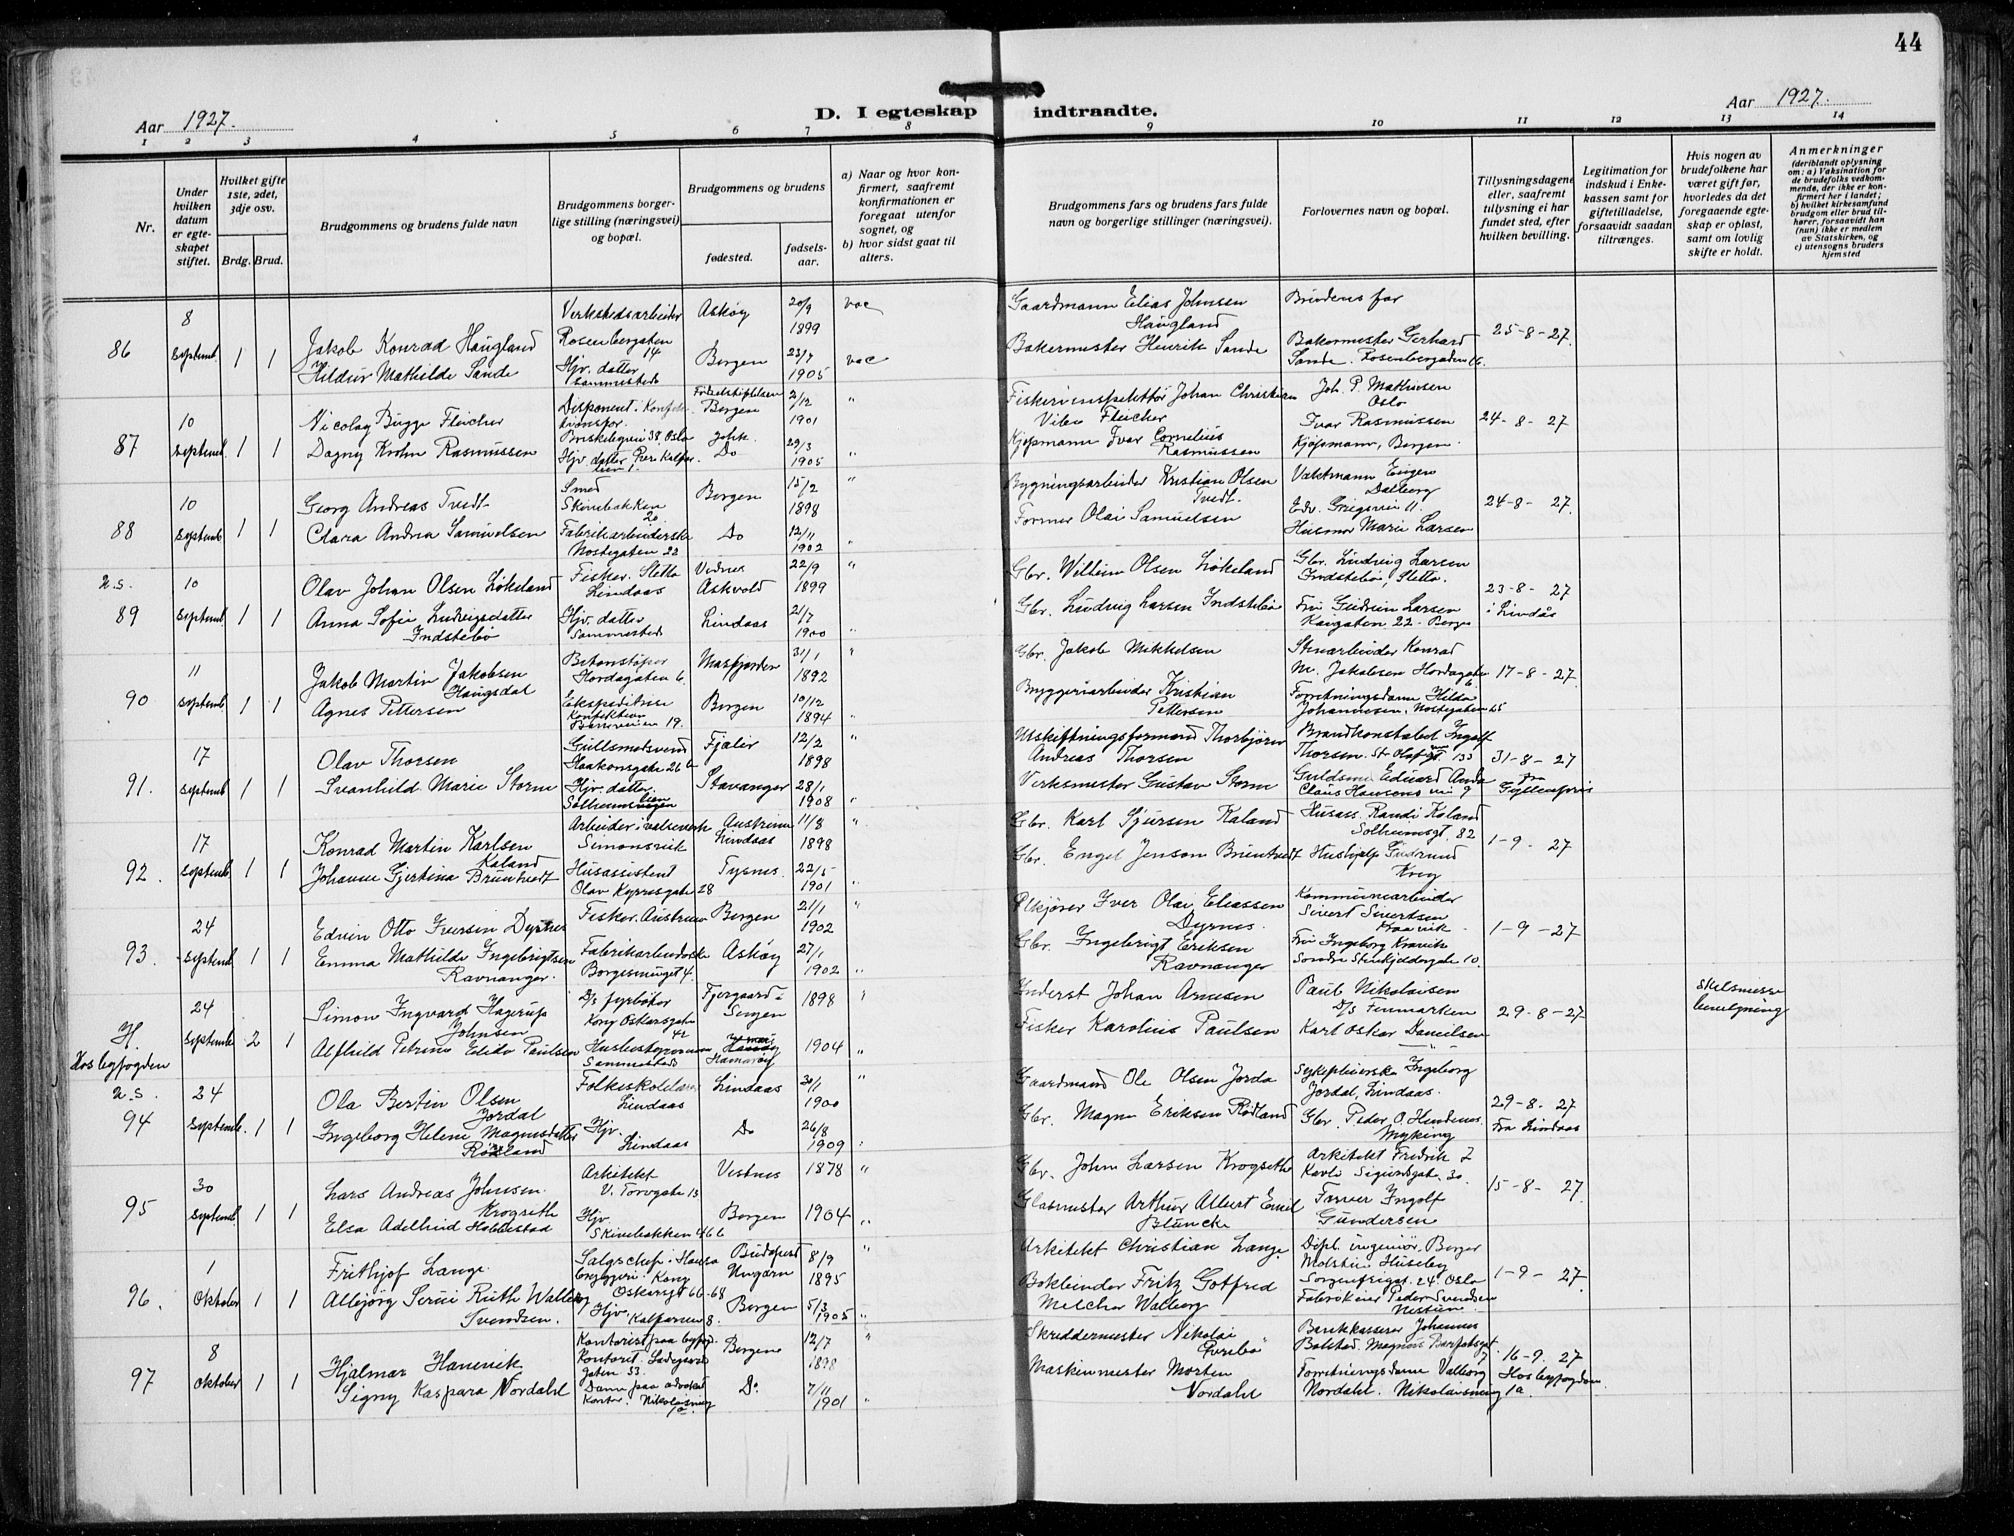 44
Aar 1927.
D. I egteskap indtraadte.
Aar 1927.
1 2 3 4 5 6 7 8 9 10 11 12 13 14
Nr.
Under hvilken datum er egteskapet stiftet.
Hvilket gifte 1ste, 2det, 3dje osv.
Brdg. Brud.
Brudgommens og brudens fulde navn
Brudgommens borgerlige stilling (næringsvei) og bopæl.
Brudgommens og brudens
fødested.
fødselsaar.
a) Naar og hvor konfirmert, saafremt konfirmationen er foregaat utenfor sognet, og
b) hvor sidst gaat til alters.
Brudgommens fars og brudens fars fulde navn og borgerlige stillinger (næringsvei).
Forlovernes navn og bopæl.
Tillysningsdagene eller, saafremt tillysning ei har fundet sted, efter hvilken bevilling.
Legitimation for indskud i Enkekassen samt for giftetilladelse, forsaavidt saadan tiltrænges.
Hvis nogen av brudefolkene har været gift før, hvorledes da det foregaaende egteskap er opløst, samt om lovlig skifte er holdt.
Anmerkninger
(deriblandt oplysning om: a) Vaksination for de brudefolks vedkommende, der ikke er konfirmert her i landet; b) hvilket kirkesamfund brudgom eller brud tilhører, forsaavidt han (hun) ikke er medlem av Statskirken, og c) utensogns bruders hjemsted
86 8 septemb. 1 1
Jakob Konrad Haugland
Hildur Mathilde Sande
Verkstedsarbeider
Rosenbergaten 14
Hjv. datter sammesteds
Askøy 20/9 1899 vac
Bergen 23/7 1905 vac
Gaardmann Elias Johnsen Haugland
Bakermester Henrik Sande
Brudens far
Bakermester Gerhard Sande. Rosenbergaten 16.
25-8-27.
87 10 septemb. 1 1
Nicolay Bugge Fleicher
Dagny Krohn Rasmussen
Bergen 2/12 1901 "
Do 29/3 1905 "
Fiskeriinspektør Johan Christian Vibe Fleicher
Kjøpmann Ivar Cornelius Rasmussen
Joh. P. Mathiesen Oslo
Ivar Rasmussen Kjøpmann, Bergen.
24-8-27
88 10 septemb 1 1
Georg Andreas Tvedt
Clara Andrea Samuelsen
Smed Skivebakken 20
Fabrikarbeiderske Nostegaten 22
Bergen 15/2 1898 "
Do 12/11 1902 "
Bygningsarbeider Kristian Olsen Tvedt.
Former Olai Samuelsen
Vaktmann Eugen Dalberg
Edv. Griegsvei 11.
Husmor Marie Larsen
24-8-27.
u.s. 89 10 septemb 1 1
Olav Johan Olsen Løkeland
Anna Sofie Ludvigsdatter Indstebø
Fisker. Sletta Lindaas
Hjv. datter Sammesteds
Askvold 22/9 1899 "
Lindaas 21/7 1900 "
Gbr. Wilhelm Olsen Løkeland
Gbr. Ludvig Larsen Indstebø
Gbr. Ludvig Larsen Indstebø, Sletta.
Fru Gudrun Larsen Kaigaten 22 - Bergen
23-8-27 i Lindås
90 11 septemb 1 1
Jakob Martin Jakobsen Haugsdal
Agnes Pettersen
Betonstøper Hordagaten 6
Ekspeditrise Konfektion 19.
Masfjorden 31/1 1892 "
Bergen 10/12 1894 "
Gbr. Jakob Mikkelsen
Bryggeriarbeider Kristian Pettersen
Stenarbeider Konrad M. Jakobsen Hordagate 6
Forretningsdame Hilda Johannesen, Nostegaten 65
17-8-27.
91. 17 septemb 1 1
Olav Thorsen
Svanhild Marie Storm
Gullsmedsvend Haakonsgate 26 b
Hjv. datter.
Fjaler 12/2 1898 "
Stavanger 28/1 1908 "
Utskiftningsformand Thorbjørn Andreas Thorsen
Verksmester Gustav Storm
Brandkonstabel Ingolf Thorsen. St Olafsgt. 133
Guldsm. Eduard Anda Claus Hansens vei 9
31-8-27
92. 17 septemb 1 1
Konrad Martin Karlsen Kaland
Johanne Gjertina Bruntvedt
Arbeider i valseverk Simonsvik
Husassistent Olav Kyrresgate 28
Austrheim Lindaas 11/8 1898 "
Tysnes. 22/5 1901 "
Gbr. Karl Sjursen Kaland
Gbr. Engel Jenson Bruntvedt
Husass. Randi Kaland Solheimsgt. 82
Hushjelp Gudrund Krog
1-9-27
93. 24 septemb 1 1
Edvin Otto Iversen Dyrnes
Emma Mathilde Ingebrigtsen Ravnanger.
Fisker. Austrheim
Fabrikarbeiderske Borgesmuget 4.
Bergen 21/1 1902 "
Askøy 27/1 1902 "
Iver Olai Eliassen Dyrnes.
Gbr. Ingebrigt Eriksen Ravnanger
Kommunearbeider Sivert Sivertsen Kraavik
Fru Ingeborg Kravik Søndre Stenkjeldergate 10.
1-9-27
H. Hos byfogden 24 septemb 2 1
Simon Ingvard Hagerup Johnsen
Alfhild Petrine Elida Paulsen
D/s fyrbøter Kong Oskarsgate 42
Husbestyrerinne Sammesteds
Sørgen 1898 "
Hamarøy 1904 "
Inderst Johan Arnesen
Fisker Karolius Paulsen
Paul Nikolaisen D/S Finmarken
Karl Oskar Danielsen
29-8-27
Skilsmissebevilgning
u.s. 94 24 septemb. 1 1
Ola Bertin Olsen Jordal
Ingeborg Helene Magnusdatter Rødland
Folkeskolelærer Lindaas
Hjv. Lindaas
Lindaas 30/11 1900 "
Do 26/8 1909 "
Gaardmand Ole Olsen Jordal
Gbr. Magne Eriksen Rødland
Sykepleierske Ingeborg Jordal, Lindaas.
Gbr. Peder O. Myking
29-8-27 Fra Lindaas
95 30 septemb 1 1
Lars Andreas Johnsen Krogseth
Elsa Adelheid Hobbestad
Arkitekt V. Torvgate 13
Hjv. Skivebakken 46 b
Vestnes 1878 "
Bergen 1904 "
Gbr. John Larsen Krogseth
Glasmester Arthur Albert Emil Bluncke
Arkitekt Fredrik Z Kavli Sigurdsgate 30.
Farver Ingolf Gundersen
15-8-27
96. 1 Oktober 1 1
Frithjof Lange.
Allbjørg Serine Ruth Walberg Svendsen.
Salgschef. Hansa bryggeri. Kong Oskarsgt 66-68
Hjv. Kalfarveien 8.
Budapest Ungarn 8/9 1895 "
Bergen 5/3 1905 "
Arkitekt Christian Lange
Bokbinder Fritz Gotfred Melchor Walberg
Dipl. ingeniør. Birger Holstein Huseby Sorgenfrigt. 24. Oslo
Fabrikeier Peder Svendsen Nestun.
1-9-27.
97 8 Oktober 1 1
Hjalmar Hanevik
Signy Kaspara Nordahl
Kontorist paa byfogd. Kontoret. Ladegaardsgaten 53.
Dame paa advokat Kontor. Nikolaismug 1a
Bergen 12/7 1898 "
Do. 7/11 1901 "
Skreddermester Nikolai
Maskinmester Morten Nordahl
Bankkasserer Johannes Bolstad. Magnus Barfotsgt. 7
Forretningsdame Valborg Nordahl. Nikolaismug 1a.
16-9-27 Hos byfogden.